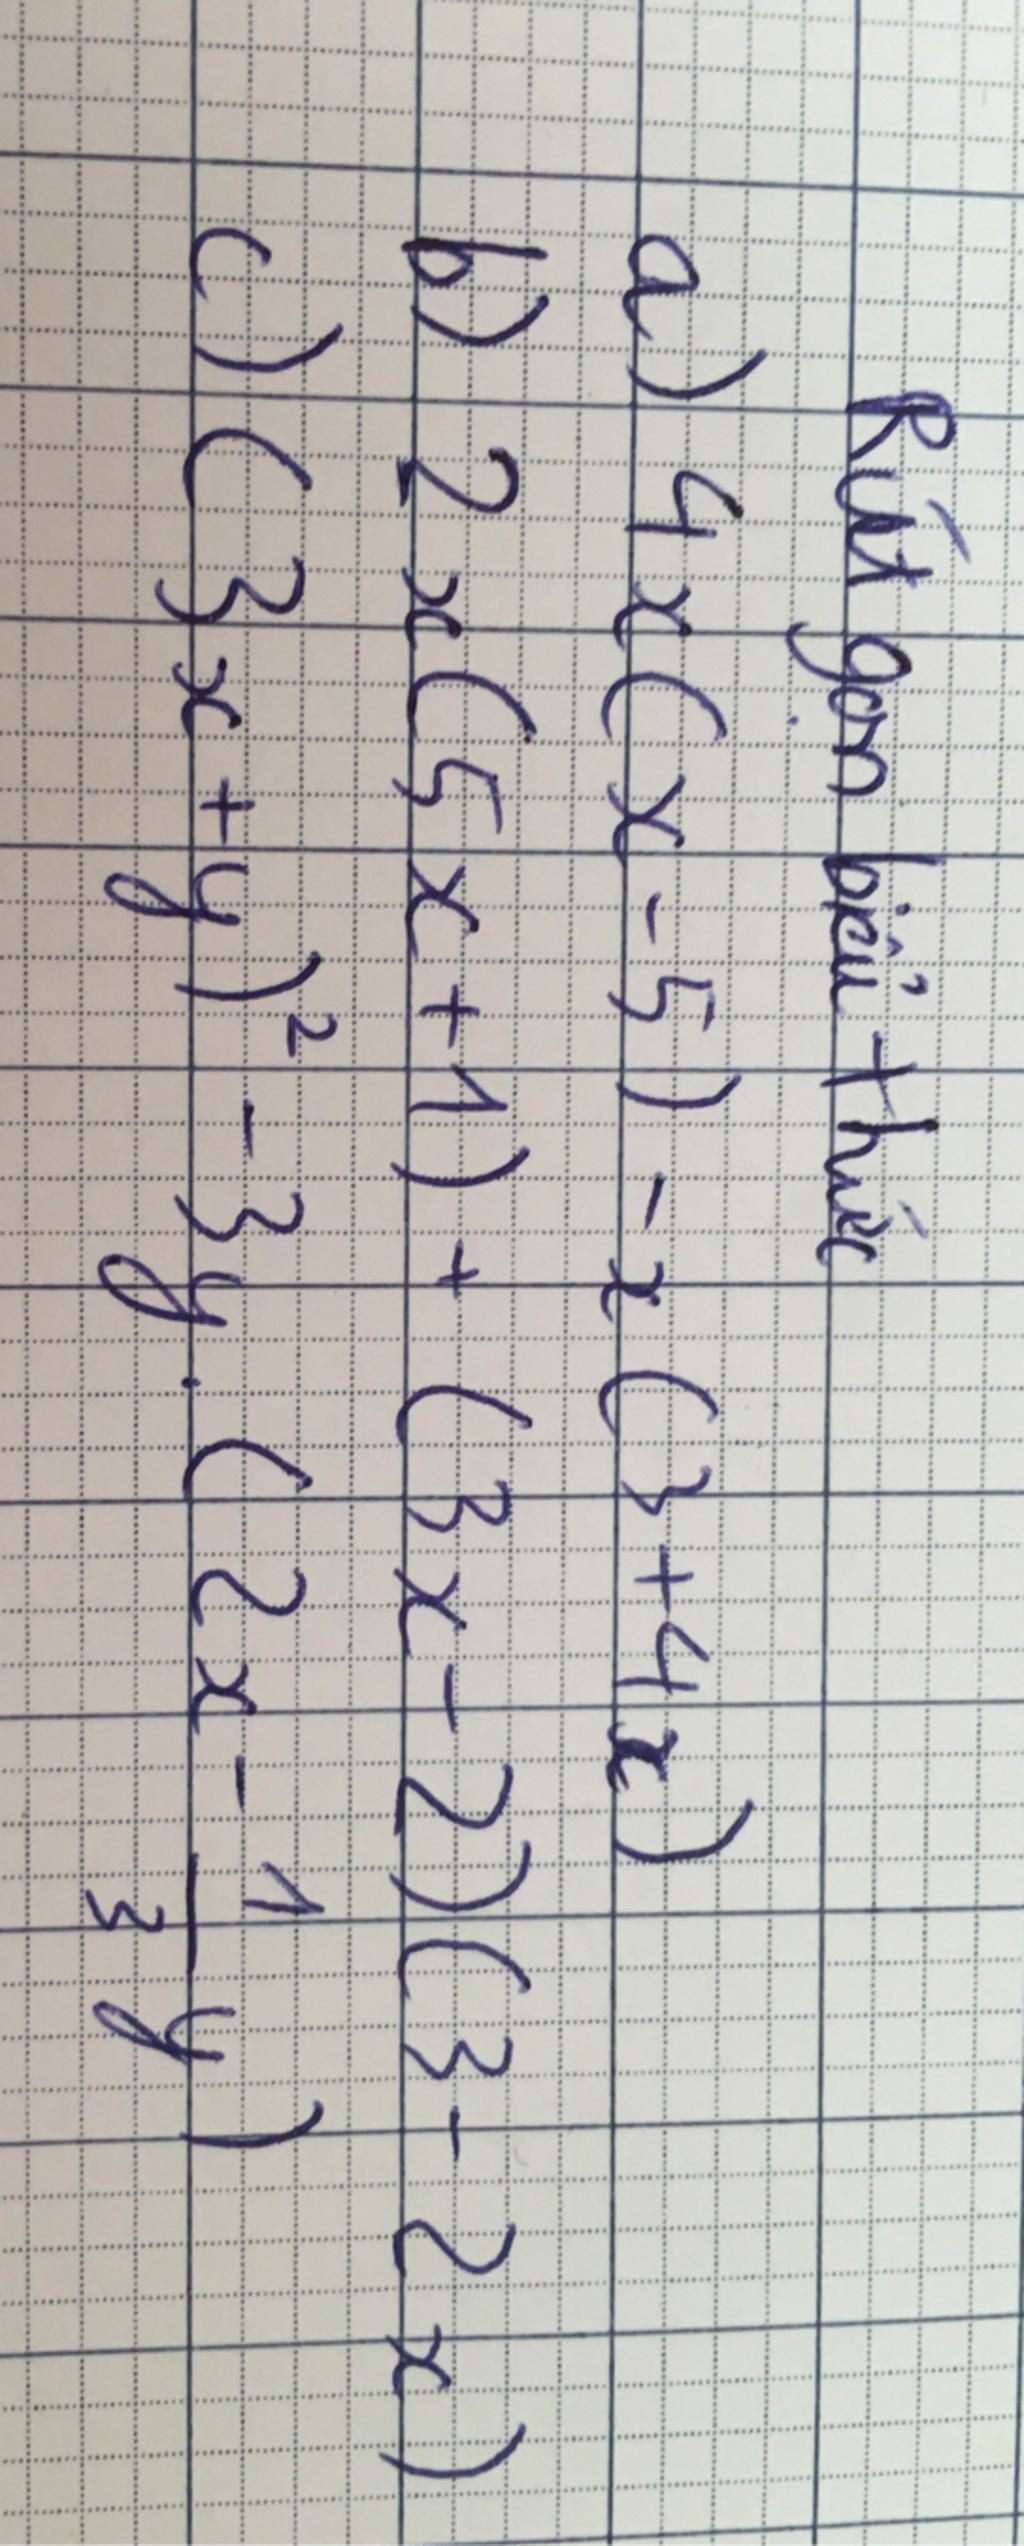 Rút gọn biểu thức
a) 4x(x-5) - x(3+4x)
b) 2x(5x+1) + (3x-2)(3-2x)
c) (3x+y)² - 3y.(2x - 1/3 y)